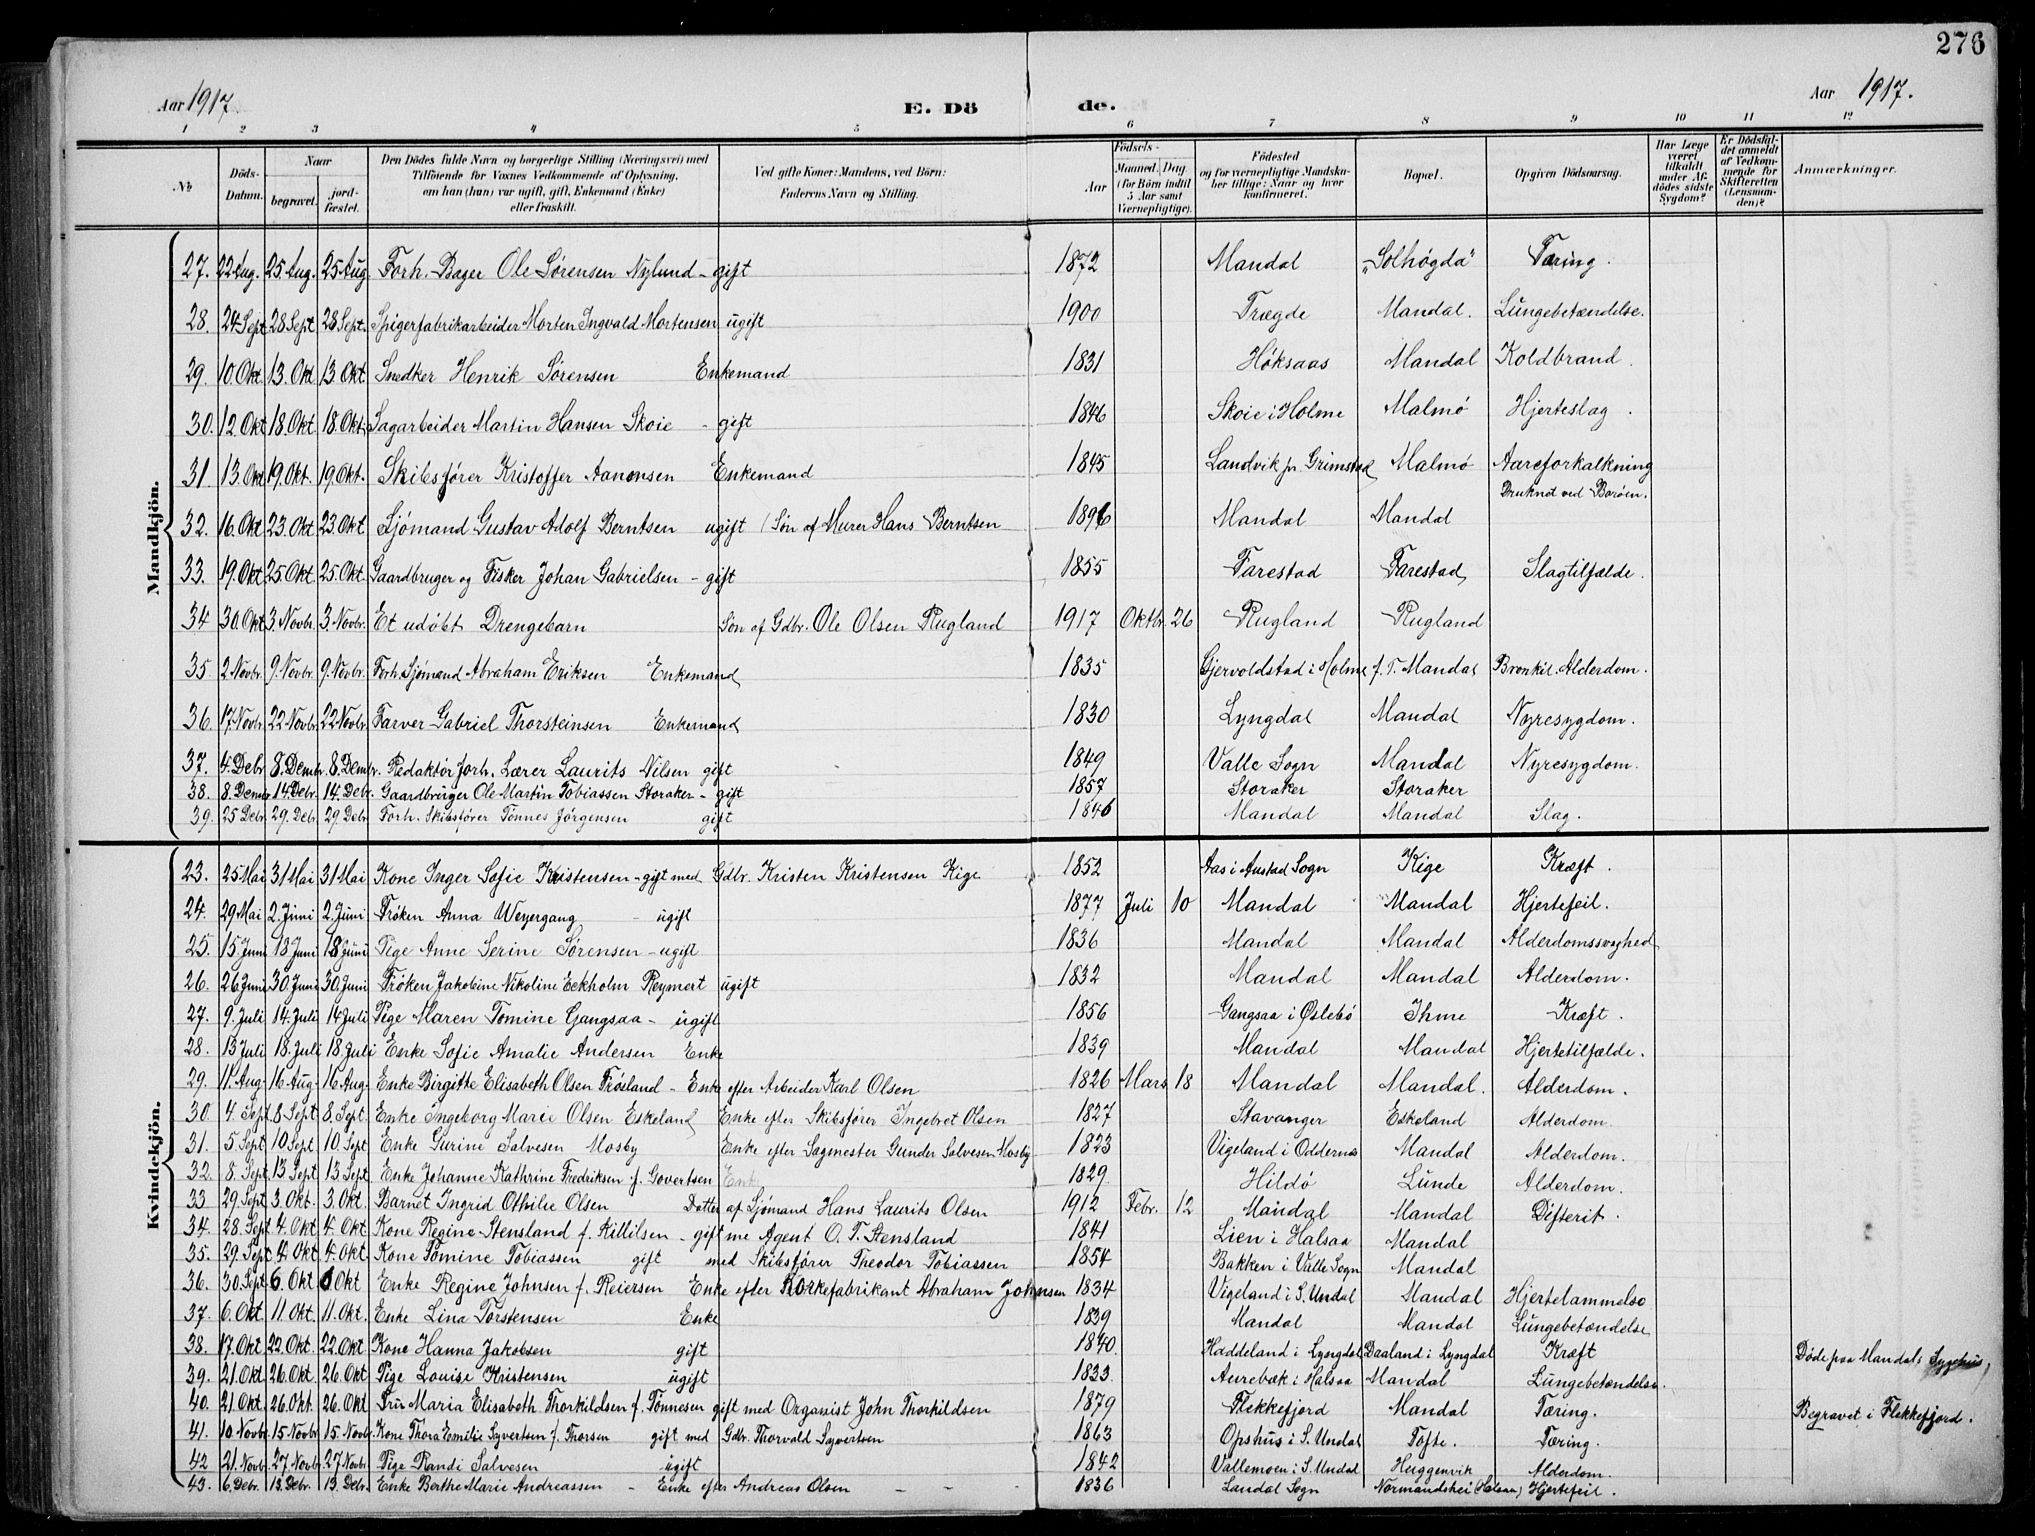 276
Aar 1917.
E. Dö de.
Aar 1917.
1 2 3 4 5 6 7 8 9 10 11 12
No
Döds-Datum.
Naar begravet. jord-fæstet.
Den Dödes fulde Navn og borgerlige Stilling (Næringsvei) med Tilföiende for Voxnes Vedkommende af Oplysning, om han (hun) var ugift, gift, Enkemand (Enke) eller fraskilt.
Ved gifte Koner: Mandens, ved Börn: Faderens Navn og Stilling.
Födsels- Aar Maaned. Dag. (for Börn indtil 5 Aar samt Værnepligtige).
Födested og for værnepligtige Mandskaber tillige: Naar og hvor konfirmeret.
Bopæl.
Opgiven Dödsaarsag.
Har Læge været tilkaldt under Afdödes sidste Sygdom?
Er Dödsfaldet anmeldt af Vedkommende for Skifteretten (Lensmanden)?
Anmærkninger.
Mandkjön.
27. 22 Aug. 25 Aug. 25 Aug. Forh. Bager Ole Sørensen Nylund - gift 1872 Mandal „Solhøgda" Tæring.
28. 24 Sept 28 Sept 28 Sept. Spigerfabrikarbeider Morten Ingvald Mortensen ugift 1900 Trægde Mandal. Lungebetændelse.
29. 10. Okt 13. Okt 13 Okt. Snedker Henrik Sørensen Enkemand 1831 Høksaas Mandal Koldbrand.
30. 12. Okt 18. Okt 18. Okt. Sagarbeider Martin Hansen Skoie - gift 1846 Skoie i Holme Malmø Hjerteslag.
31 13. Okt 19. Okt. 19. Okt. Skibsfører Kristoffer Aanonsen Enkemand 1845 Landvik pr. Grimstad Malmø Aareforkalkning
32. 16. Okt 23. Okt 23. Okt Sjømand Gustav Adolf Berntsen ugift (Søn af Murer Hans Berntsen 1896 Mandal Mandal Druknet ved Borøen.
33. 19. Okt 25 Okt 25. Okt. Gaardbruger og Fisker Johan Gabrielsen - gift 1855 Farestad Farestad Slagtilfælde.
34 30. Okt 3. Novbr. 3. Novbr. Et udøbt Drengebarn Søn af Gdbr. Ole Olsen Rugland 1917 Oktbr. 26 Rugland Rugland
35. 2. Novbr. 9. Novbr. 9. Novbr. Forh. Sjømand Abraham Eriksen Enkemand 1835 Gjervoldstad i Holme f. T. Mandal Bronkit. Alderdom.
36. 17. Novbr. 22. Novbr 22. Novbr. Farver Gabriel Thorsteinsen Enkemand 1830 Lyngdal Mandal Nyresygdom.
37. 4. Debr 8. Dembr. 8. Dembr. Redaktør forh. Lærer Laurits Nilsen gift 1849 Valle Sogn Mandal Nyresygdom.
38. 8. Dembr 14. Debr. 14. Debr. Gaardbruger Ole Martin Tobiassen Storaker - gift 1857 Storaker Storaker
39. 25 Debr. 29. Debr 29. Debr Forh. Skibsfører Tønnes Jørgensen gift 1846 Mandal Mandal Slag.
Kvindekjön.
23. 25 Mai 31 Mai 31 Mai Kone Inger Sofie Kristensen - gift med Gdbr. Kristen Kristensen Kige 1852 Aas i Austad Sogn Kige Kræft.
24. 29 Mai 2. Juni 2. Juni Frøken Anna Weyergang - ugift 1877 Juli 10 Mandal Mandal Hjertefeil.
25. 15 Juni 18 Juni 18 Juni Pige Anne Serine Sørensen - ugift 1836 Mandal Mandal Alderdomssvaghed
26. 26 Juni 30. Juni 30. Juni Frøken Jakobine Nikoline Eckholm Reymert ugift 1832 Mandal Mandal Alderdom.
27. 9. Juli 14. Juli 14 Juli Pige Maren Tomine Gangsaa - ugift 1856 Gangsaa i Øslebø Ihme Kræft.
28. 13 Juli 18. Juli 18. Juli Enke Sofie Amalie Andersen Enke 1839 Mandal Mandal Hjertetilfælde.
29. 11 Aug. 16 Aug. 16 Aug. Enke Birgitte Elisabeth Olsen Frøsland - Enke efter Arbeider Karl Olsen 1826 Mars 18 Mandal Mandal. Alderdom.
30. 4. Sept 8 Sept 8. Sept. Enke Ingeborg Marie Olsen Eskeland Enke efter Skibsfører Ingebret Olsen 1827 Stavanger Eskeland Alderdom.
31. 5 Sept 10 Sept 10 Sept Enke Gurine Salvesen Mosby Enke efter Sagmester Gunder Salvesen Mosby 1823 Vigeland i Oddernes Mandal Alderdom.
32. 8. Sept 13 Sept 13 Sept. Enke Johanne Kathrine Fredriksen f. Govertsen Enke 1829. Hildø Lunde Alderdom.
33 29. Sept 3. Okt. 3. Okt. Barnet Ingrid Othilie Olsen Datter af Sjømand Hans Laurits Olsen 1912 Febr. 12 Mandal Mandal Difterit.
34. 28. Sept 4. Okt 4. Okt Kone Regine Stensland f. Killilsen - gift me Agent O. T. Stensland 1841 Lien i Halsaa Mandal
35. 29. Sept 4. Okt. 4. Okt. Kone Tomine Tobiassen gift med Skibsfører Theodor Tobiassen 1854 Bakken i Valle Sogn Mandal
36. 30. Sept 6. Okt 6 Okt Enke Regine Johnsen f. Reiersen Enke efter Korkefabrikant Abraham Johnsen 1834 Vigeland i S. Undal Mandal Hjertelammelse
37. 6. Okt 11. Okt. 11. Okt. Enke Lina Torstensen Enke 1839 Mandal Mandal Lungebetændelse
38. 17. Okt 22. Okt. 22. Okt Kone Hanna Jakobsen gift 1840. Haddeland i Lyngdal Daaland i Lyngdal Kræft Døde paa Mandals Sygehus,
39. 21. Okt 26. Okt. 26. Okt Pige Louise Kristensen ugift 1833. Aurebæk i Halsaa Mandal Lungebetændelse.
40. 21. Okt 26. Okt. 26. Okt Fru Maria Elisabeth Thorkildsen f. Tønnesen gift med Organist John Thorkildsen 1879 Flekkefjord Mandal Tæring. Begravet i Flekkefjord.
41. 10. Novbr 15. Novbr 15. Novbr. Kone Thora Emilie Syvertsen f. Thorsen gift med Gdbr. Thorvald Syvertsen 1863 Opshus i S. Undal Tofte. Tæring.
42 21. Novbr. 27. Novbr 27 Novbr. Pige Randi Salvesen ugift 1842 Vallemoen i S. Undal Huggenvik Alderdom.
43. 6. Debr. 13. Debr. 13. Debr. Enke Berthe Marie Andreassen - Enke efter Andreas Olsen - - 1836 Landal Sogn Normandshei (Halsaa) Hjertefeil.